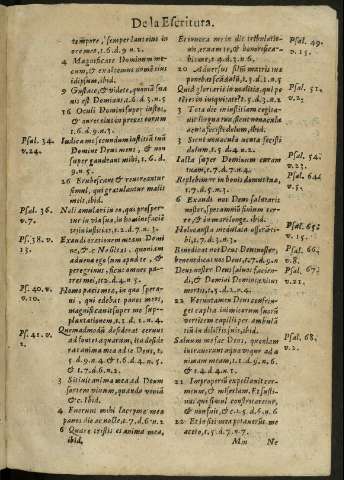 De la Escritura.
tempore, semper laus eius in
ore meo, 1.6.d.9.n.2.
4 Magnificate Dominum me-
cum, & exaltemus nomen eius
idipsum, ibid.
9 Gustate, & videte, quoniã sua
uis est Dominus. 1.6.d.3.n.5
16 Oculi Domini super iustos,
& aures eius in preces eorum
1.6.d.9.n.3.
Psal. 34.
v.24.
Iudica me secundum iustitiã tuã
Domine Deus meus, & non
super gaudeant mihi, 1.6.d.
9.n.5.
26 Erubescant & reuereantur
simul, qui gratulantur malis
meis, ibid.
Psal. 36.
v.7.
Noli æmulari in eo, qui prospe-
ratur in via sua, in homine faciē
Ps. 38. v.
13.
Exaudi orationem meam Domi
ne, & c. Ne sileas, quoniam
aduena ego sum apud te, &
peregrinus, sicut omnes pa-
tres mei, 1.2.d.4.n.5.
Ps. 40. v.
v.10.
Homo pacis meæ, in quo spera-
ui, qui edebat panes meos,
magnificauit super me sup-
plantationem, 1.2.d.1.n.4.
Ps. 41. v.
2.
Quemadmodũ desiderat ceruus
ad fontes aquarum, ita deside
rat anima mea ad te Deus, 1.
5.d.9.n.4. & 1.6.d.4.n.5.
& 1.7.d.6.n.2.
3 Sitiuit anima mea ad Deum
fortem viuum, quando veniã
&c. ibid.
4 Fuerunt mihi lacrymæ meæ
panes die ac nocte, 1.7.d.6.n.2
6 Quare tristis es anima mea,
ibid.
Et inuoca me in die tribulatio-
nis, eruam te, & honorifica-
bis me, 1.4.d.3.n.6.
Psal. 49.
v.15.
20 Aduersus filiũ matris tuæ
ponebas scãdalũ, 1.3.d.1.n.5
Quid gloriaris in malitia, qui po
tens es in iniquitate? 1.5.d.3.n.2
Psal. 51.
v.
3 Tota die iniustitiã cogita-
uit lingua tua, sicut nouacula
acuta fecisti dolum, ibid.
3 Sicut nouacula acuta fecisti
dolum, 1.5.d.4.n.2.
Iacta super Dominum curam
tuam, 1.7.d.7.n.4.
Psal. 54.
v.23.
Replebimur in bonis domus tuæ,
1.7.d.5.n.3.
Psal. 64.
v.5.
6 Exaudi nos Deus salutaris
noster, spes omniũ finium ter-
ræ, & in mari longe. ibid.
Holocausta medullata offeram
tibi, 1.7.d.3.n.3.
Psal. 65.
v.15.
Benedicat nos Deus, Deus noster,
benedicat nos Deus, 1.7.d.9.n
Psal. 66.
v.8.
Deus noster Deus saluos facien-
di, & Domini Domini exitus
mortis, 1.5.d.2.n.4.
Psal. 67.
v.21.
22 Veruntamen Deus confrin-
get capita inimicorum suorũ
verticem capilli perambulã
tiũ in delictis suis, ibid.
Saluum me fac Deus, quoniam
intrauerunt aquæ vsque ad a
nimam meam, 1.1.d.9.n.6.
& 1.4.d.4.n.1.
Psal. 68.
v.2.
21 Improperiũ expectauit cor
meum, & miseriam. Et susti-
nui qui simul contristaretur,
& non fuit, &c. 1.5.d.6.n.6
22 Et in siti mea potauerũt me
aceto, 1.5.d.7.n.7.
Mm
Ne